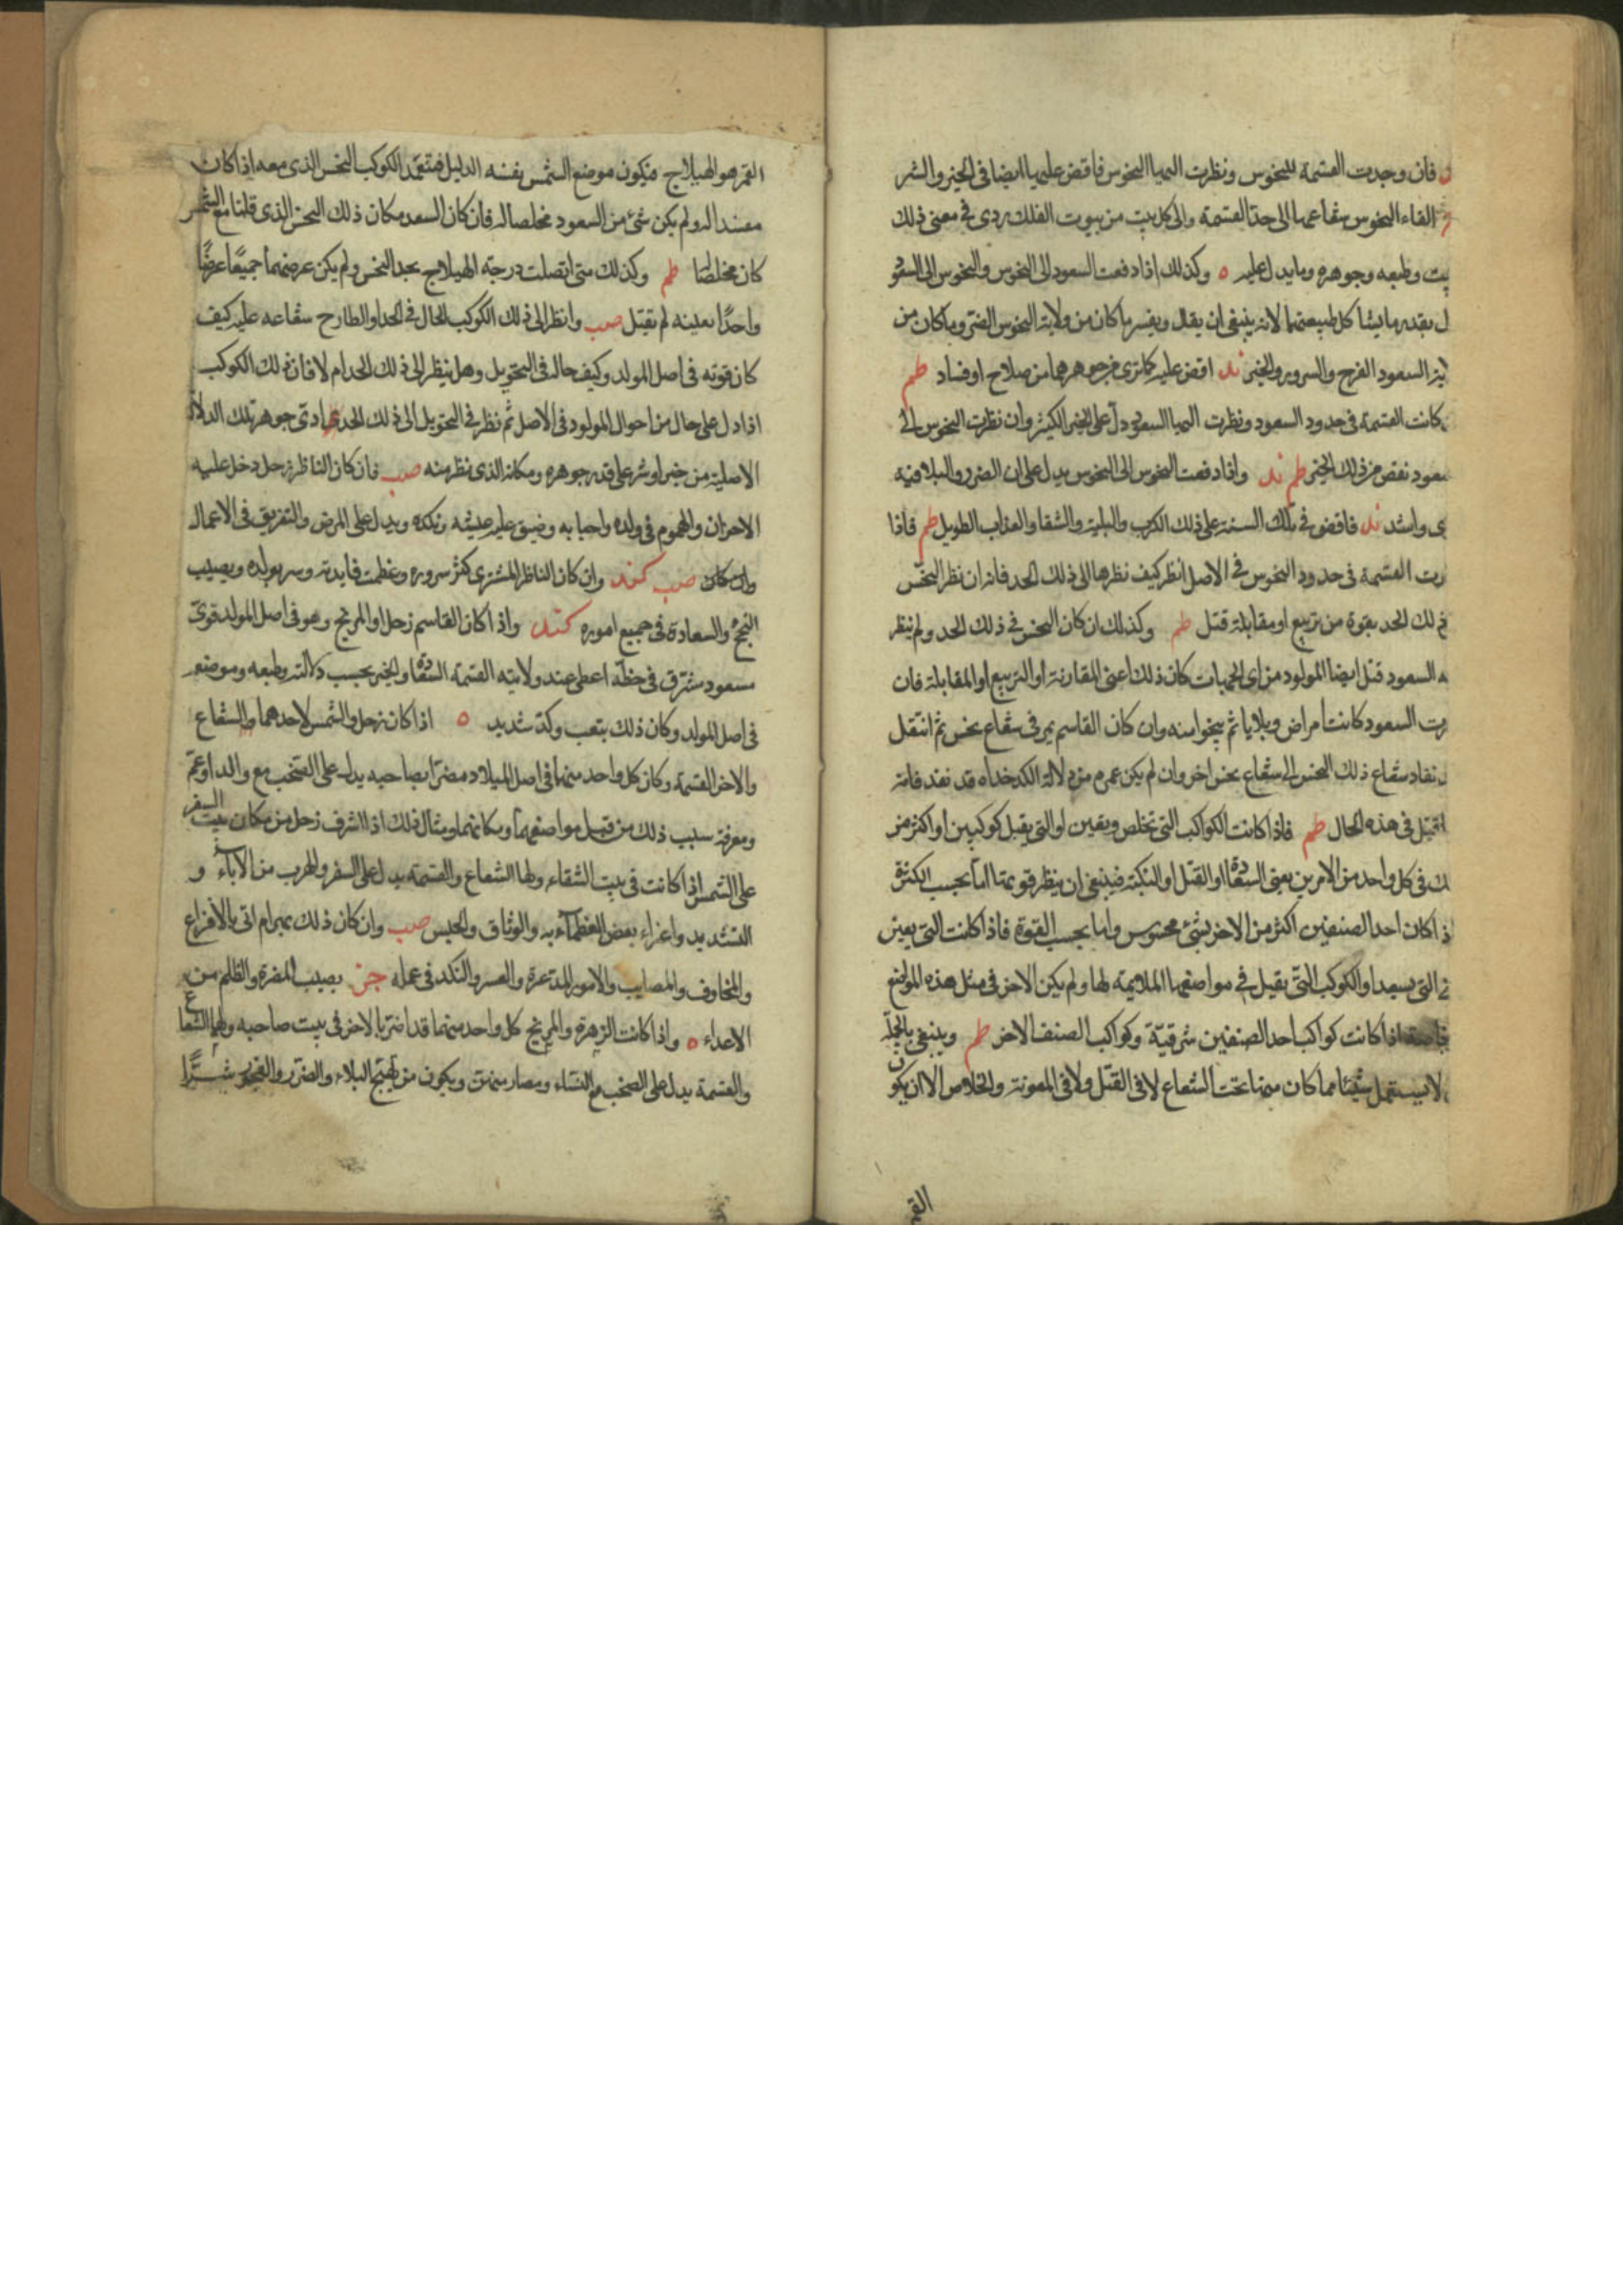 فان وجدت القسمة للنحوس ونظرت اليها النحوس فاقض عليها ايضا فى الخير والشر
القاء النحوس شعاعها الى حد القسمة والى كل بيت من بيوت الفلك ردى فى معنى ذلك
بيت وطبعه وجوهره وما يدل عليه ه وكذلك اذا دفعت السعود الى النحوس والنحوس الى السعود
ل بقدر ما يشاكل طبيعتهما لانه ينبغى ان يقال ويفسر ما كان من ولاية النحوس الضر وما كان من
لاية السعود الفرح والسرور والخير ند اقض عليه كما ترى من جوهرهما من صلاح او فساد طم
كانت القسمة فى حدود السعود ونظرت اليها السعود دل على الخير الكثير وان نظرت النحوس الى
سعود نقص من ذلك الخير طم ند واذا دفعت النحوس الى النحوس يدل على ان الضرر والبلا فيه
ى واشد ند فاقض فى تلك السنة على ذلك الكرب والبلية والشقا والعذاب الطويل طم فاذا
رت القسمة فى حدود النحوس فى الاصل انظر كيف نظرها الى ذلك الحد فانه ان نظر النحس
ذلك الحد بقوة من تربيع او مقابلة قتل طم وكذلك ان كان النحس فى ذلك الحد ولم ينظر
ه السعود قتل ايضا المولود من اى الجهات كان ذلك اعنى المقارنة او التربيع او المقابلة فان
رت السعود كانت امراض وبلايا ثم ينجوا منه وان كان القاسم يمر فى شعاع نحس ثم انتقل
نفاد شعاع ذلك النحس الى شعاع نحس اخر وان لم يكن عمره من دلالة الكدخداه قد نفد فانه
يقتل فى هذه الحال طم فاذا كانت الكواكب التى تخلص ويعين او التى يقبل كوكبين او اكثر من
لك فى كل واحد من الامرين يعنى السعادة او القتل او النكبة فينبغى ان ينظر قوتهما اما بحسب الكثرة
ذا كان احد الصنفين اكثر من الاخر بشئ محسوس واما بحسب القوة فاذا كانت التى يعين
التى يسعد او الكوكب التى يقبل فى مواضعها الملايمة لها ولم يكن الاخر فى مثل هذه المواضع
خاصة اذا كانت كواكب احد الصنفين شرقية وكواكب الصنف الاخر طم وينبغى بالجملة
لا يستعمل شيئا مما كان منها تحت الشعاع لا فى القتل ولا فى المعونة والخلاص الا ان يكون
القمر
القمر هو الهيلاج فيكون موضع الشمس نفسه الدليل فتعمد الكوكب النحس الذى معه اذا كان
مفسدا له ولم يكن شئ من السعود مخلصا له فان كان السعد مكان ذلك النحس الذى قلنا مع الشمس
كان مخلصا طم وكذلك متى اتصلت درجة الهيلاج بحد النحس ولم يكن عرضهما جميعًا عرضًا
واحدًا بعينه لم يقتل صب وانظر الى ذلك الكوكب الحال فى الحد او الطارح شعاعه عليه كيف
كان قوته فى اصل المولد وكيف حاله فى التحويل وهل ينظر الى ذلك الحد ام لا فان ذلك الكوكب
اذا دل على حال من احوال المولود فى الاصل ثم نظر فى التحويل الى ذلك الحد ادى جوهر تلك الدلالة
الاصلية من خير او شر على قدر جوهره ومكانه الذى نظر منه صب فان كان الناظر زحل دخل عليه
الاحزان والهموم فى ولده واحبابه وضيق عليه عيشه ونكده ويدل على المرض والتفريق فى الاعمال
وان كان صب كند وان كان الناظر المشترى كثر سروره وعظمت فايدته وسر بولده ويصيب
النجح والسعادة فى جميع اموره كند واذا كان القاسم زحل او المريخ وهو فى اصل المولد قوى
مسعود مشرق فى حظه اعطى عند ولايته القسمة السعادة والخير بحسب دلالته وطبعه وموضعه
فى اصل المولد وكان ذلك بتعب وكد شديد ه اذا كان زحل والشمس لاحدهما والشعاع
والاخر القسمة وكان كل واحد منهما فى اصل الميلاد مضرا بصاحبه يدل على الصخب مع والد او عم
ومعرفة سبب ذلك من قبل مواضعهما ومكانهما ومثال ذلك اذا اشرف زحل من مكان بيت السفر
على الشمس اذا كانت فى بيت الشقاء ولها الشعاع والقسمة يدل على السفر والهرب من الآباء و
التشديد واغراء بعض العظماء به والوثاق والحبس صب وان كان ذلك بمرام اتى بالأفزاع
والمخاوف والمصايب والامور المذعرة والعسر والنكد فى عمله جن يصيب المضرة والظلم من
الاعداء ه واذا كانت الزهرة والمريخ كل واحد منهما قد اضر بالاخر فى بيت صاحبه ولهما الشعاع
والقسمة يدل على الصخب مع النساء ومضارمنهن ويكون من تهيج البلاء والضرر والفجور شرًا